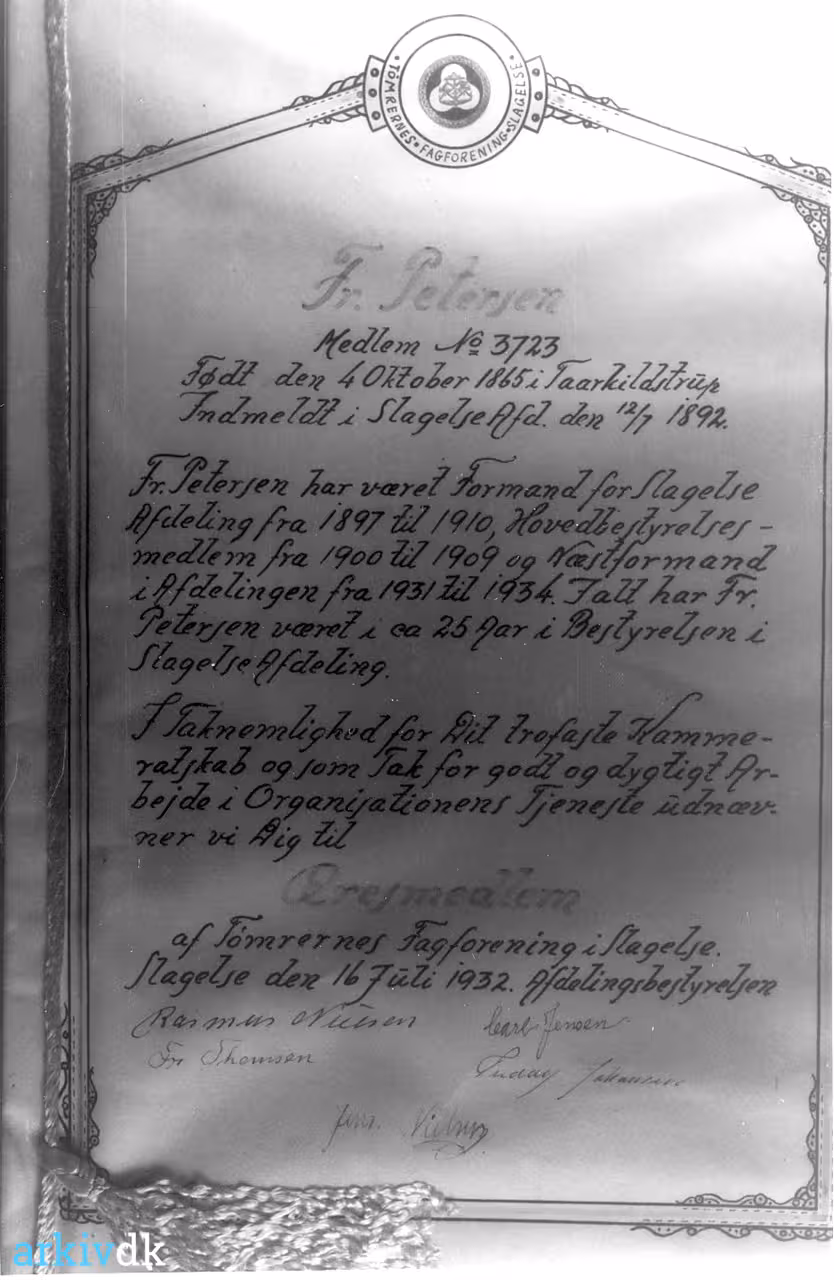 • TÖMRERNES • FAGFORENING • SLAGELSE •
Fr. Petersen
Medlem No 3723
Født den 4 Oktober 1865 i Taarkildstrup
Indmeldt i Slagelse Afd. den 12/7 1892.
Fr. Petersen har været Formand for Slagelse
Afdeling fra 1897 til 1910, Hovedbestyrelses-
medlem fra 1900 til 1909 og Næstformand
i Afdelingen fra 1931 til 1934. Ialt har Fr.
Petersen været i ca 25 Aar i Bestyrelsen i
Slagelse Afdeling.
I Taknemlighed for Dit trofaste Kamme-
ratskab og som Tak for godt og dygtigt Ar-
bejde i Organisationens Tjeneste udnæv-
ner vi Dig til
Æresmedlem
af Tömrernes Fagforening i Slagelse.
Slagelse den 16 Juli 1932. Afdelingsbestyrelsen
Rasmus Nielsen Carl Jensen
Fr Thomsen
Johansen
Jens
arkivdk